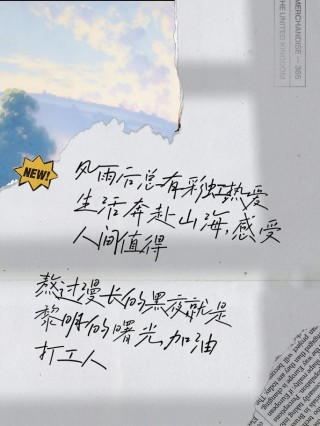 MERCHANDISE — 365
THE UNITED KINGDOM
NEW!
风雨后总有彩虹热爱
生活奔赴山海,感受
人间值得
熬过漫长的黑夜就是
黎明的曙光,加油
打工人